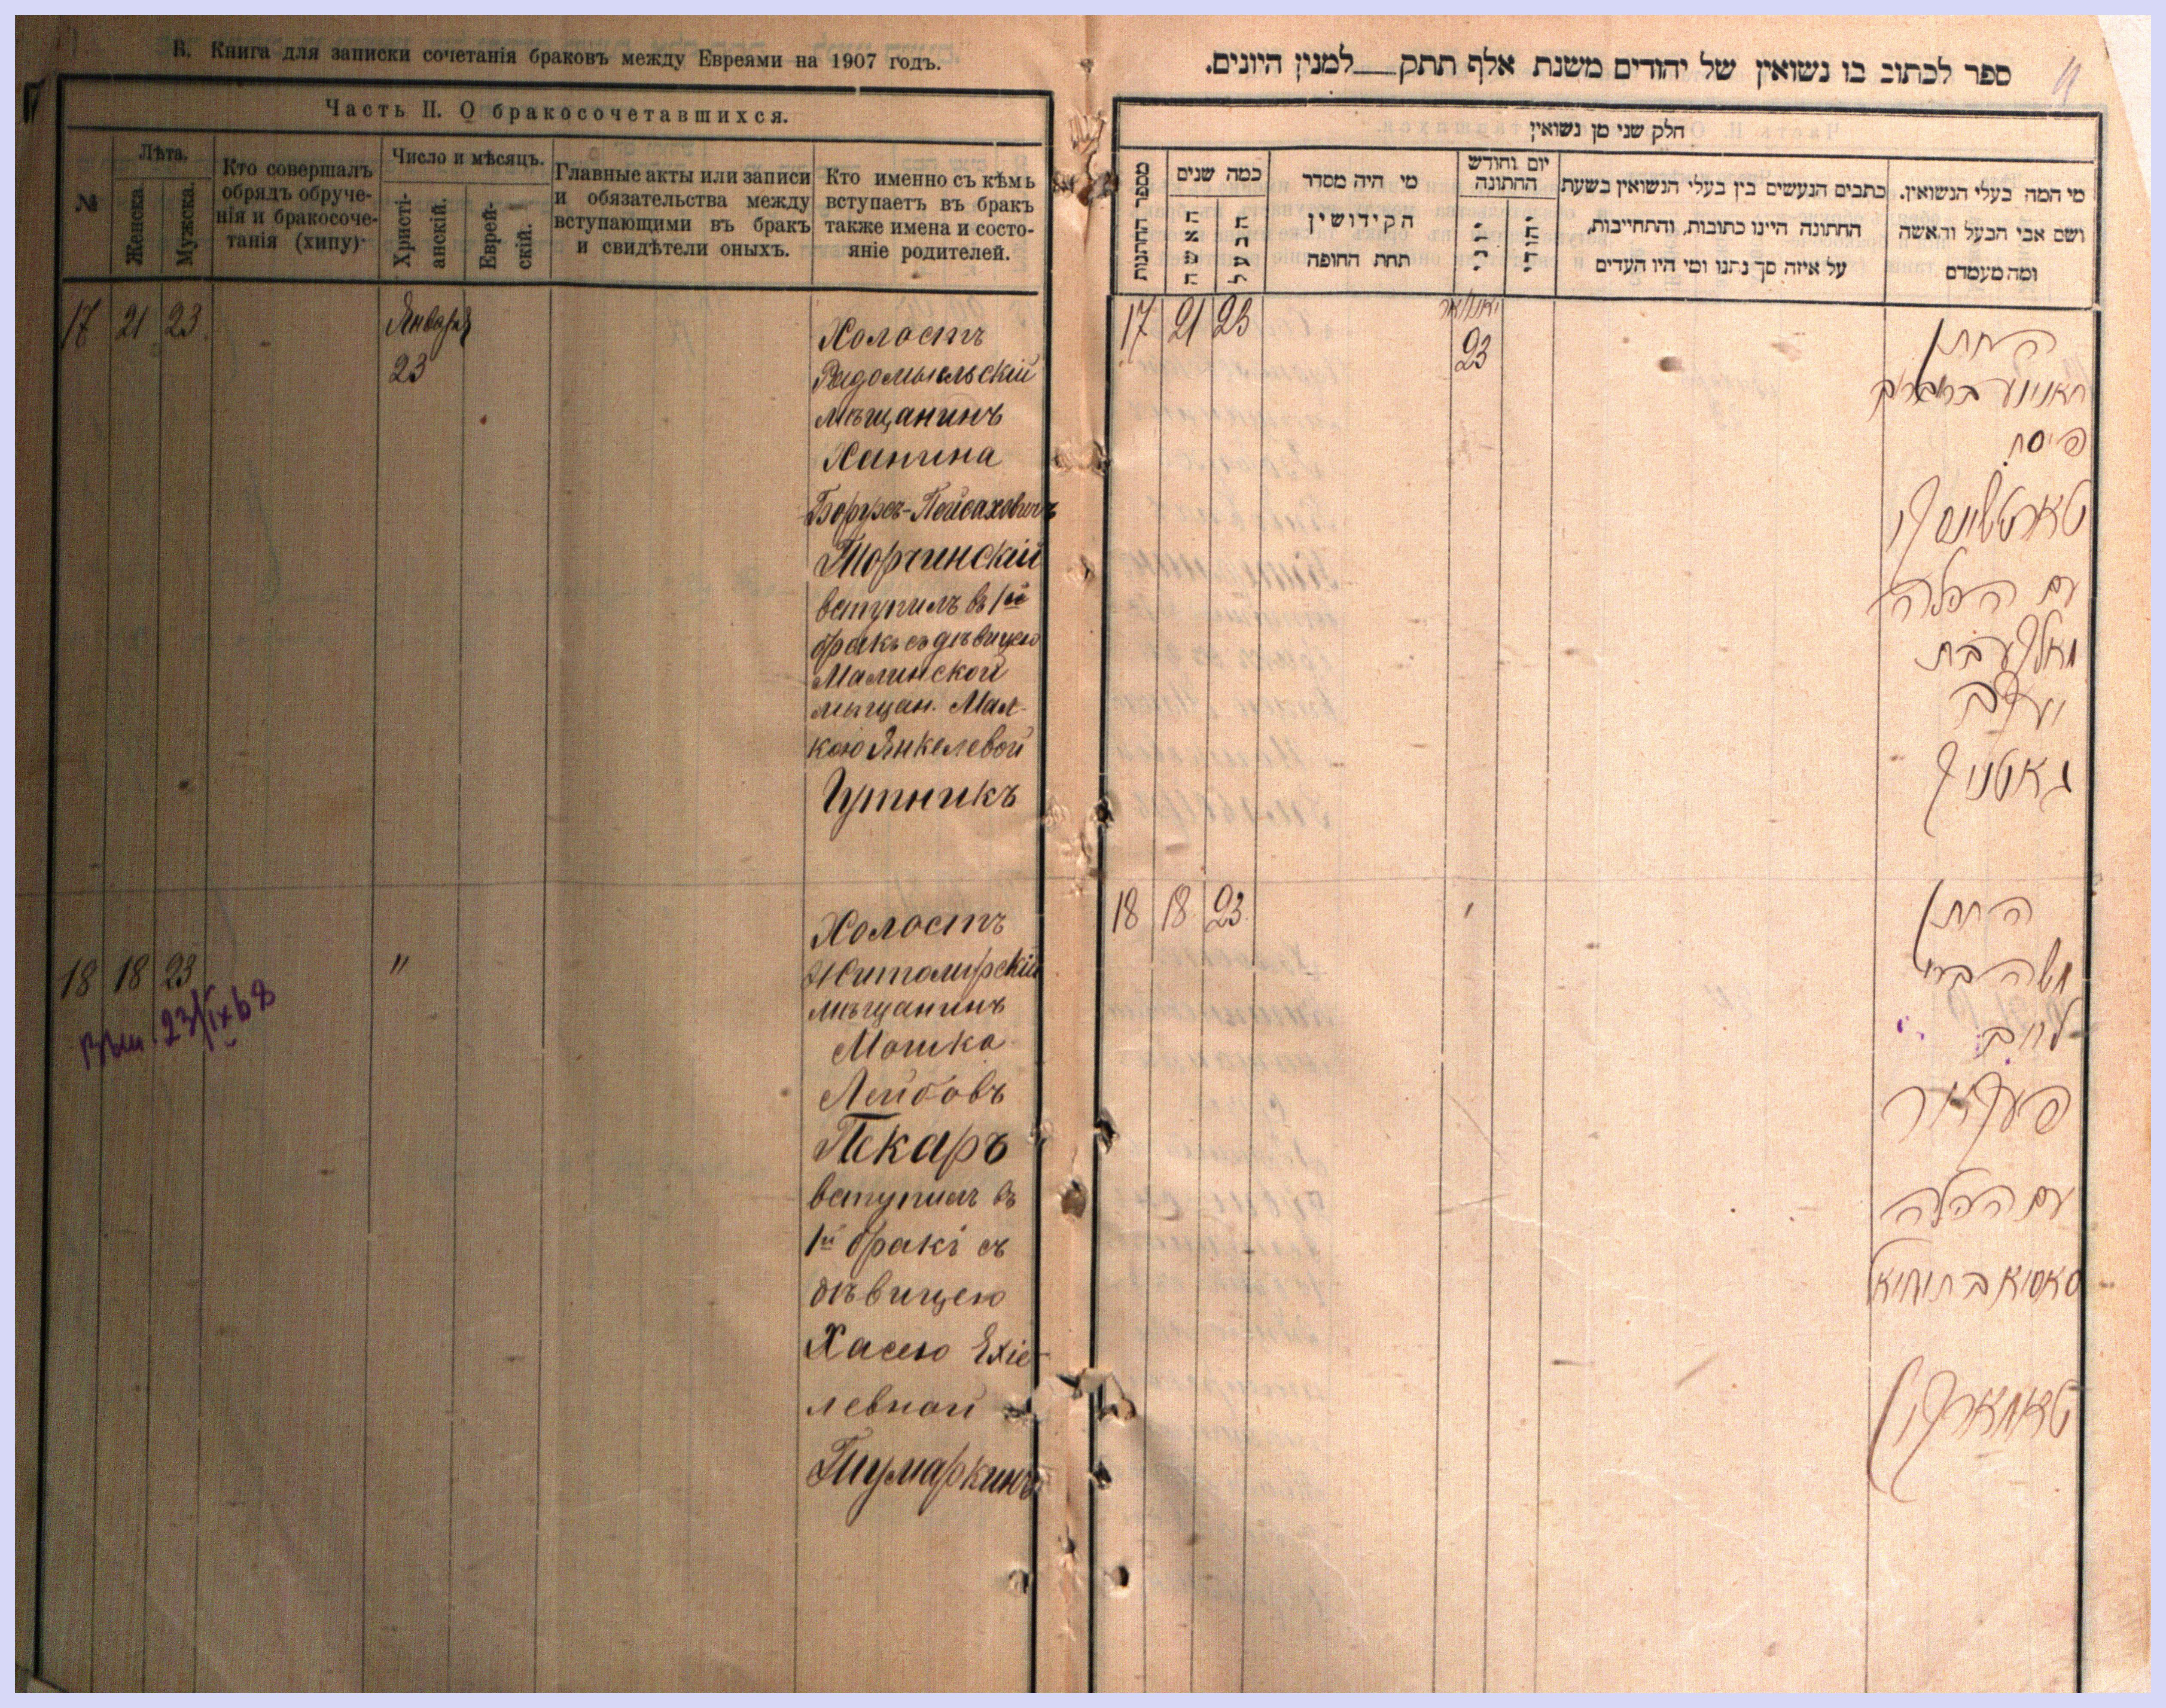 В. Книга для записки сочетанія браковъ между Евреями на 1907 годъ.
Часть II. О бракосочетавшихся.
№
Лѣта.
Женска.
Мужска.
Кто совершалъ
обрядъ обруче-
нія и бракосоче-
танія (хипу)
Число и мѣсяцъ.
Христі-
анскій.
Еврей-
скій.
Главные акты или записи
и обязательства между
вступающими въ бракъ
и свидѣтели оныхъ.
Кто именно съ кѣмъ
вступаетъ въ бракъ
также имена и состо-
яніе родителей.
17 21 23
Января
23
Холостъ
Радомысльскій
мѣщанинъ
Ханина
Борухъ-Пейсаховичъ
Торчинскій
вступилъ въ 1й
бракъ съ дѣвицею
Малинской
мѣщан. Мал-
кою Янкелевой
Гутникъ
18 18 23
"
23/IX 68
Холостъ
Житомирскій
мѣщанинъ
Мошка
Лейбовъ
Пекаръ
вступилъ въ
1й бракъ съ
дѣвицею
Хасею Ехіе-
левной
Тумаркинъ
ספר לכתוב בו נשואין של יהודים משנת אלף תתק__למנין היונים.
חלק שני מן נשואין
מספר החתונות
כמה שנים
האשה
הבעל
מי היה מסדר
הקידושין
תחת החופה
יום וחודש
החתונה
יוני
יהודי
כתבים הנעשים בין בעלי הנשואין בשעת
החתונה היינו כתובות, והתחייבות,
על איזה סך נתנו ומי היו העדים
מי המה בעלי הנשואין.
ושם אבי הבעל והאשה
ומה מעמדם
17 21 23
יאנואר
23
החתן
חאנינע ב״ר ברוך
פיסח
טארטשינסקי
עם הכלה
מאלקע בת
יעקב
גאטניק
18 18 23
החתן
משה ב״ר
לייב
פעקאר
עם הכלה
חאסיא בת יחיאל
טאמארקין